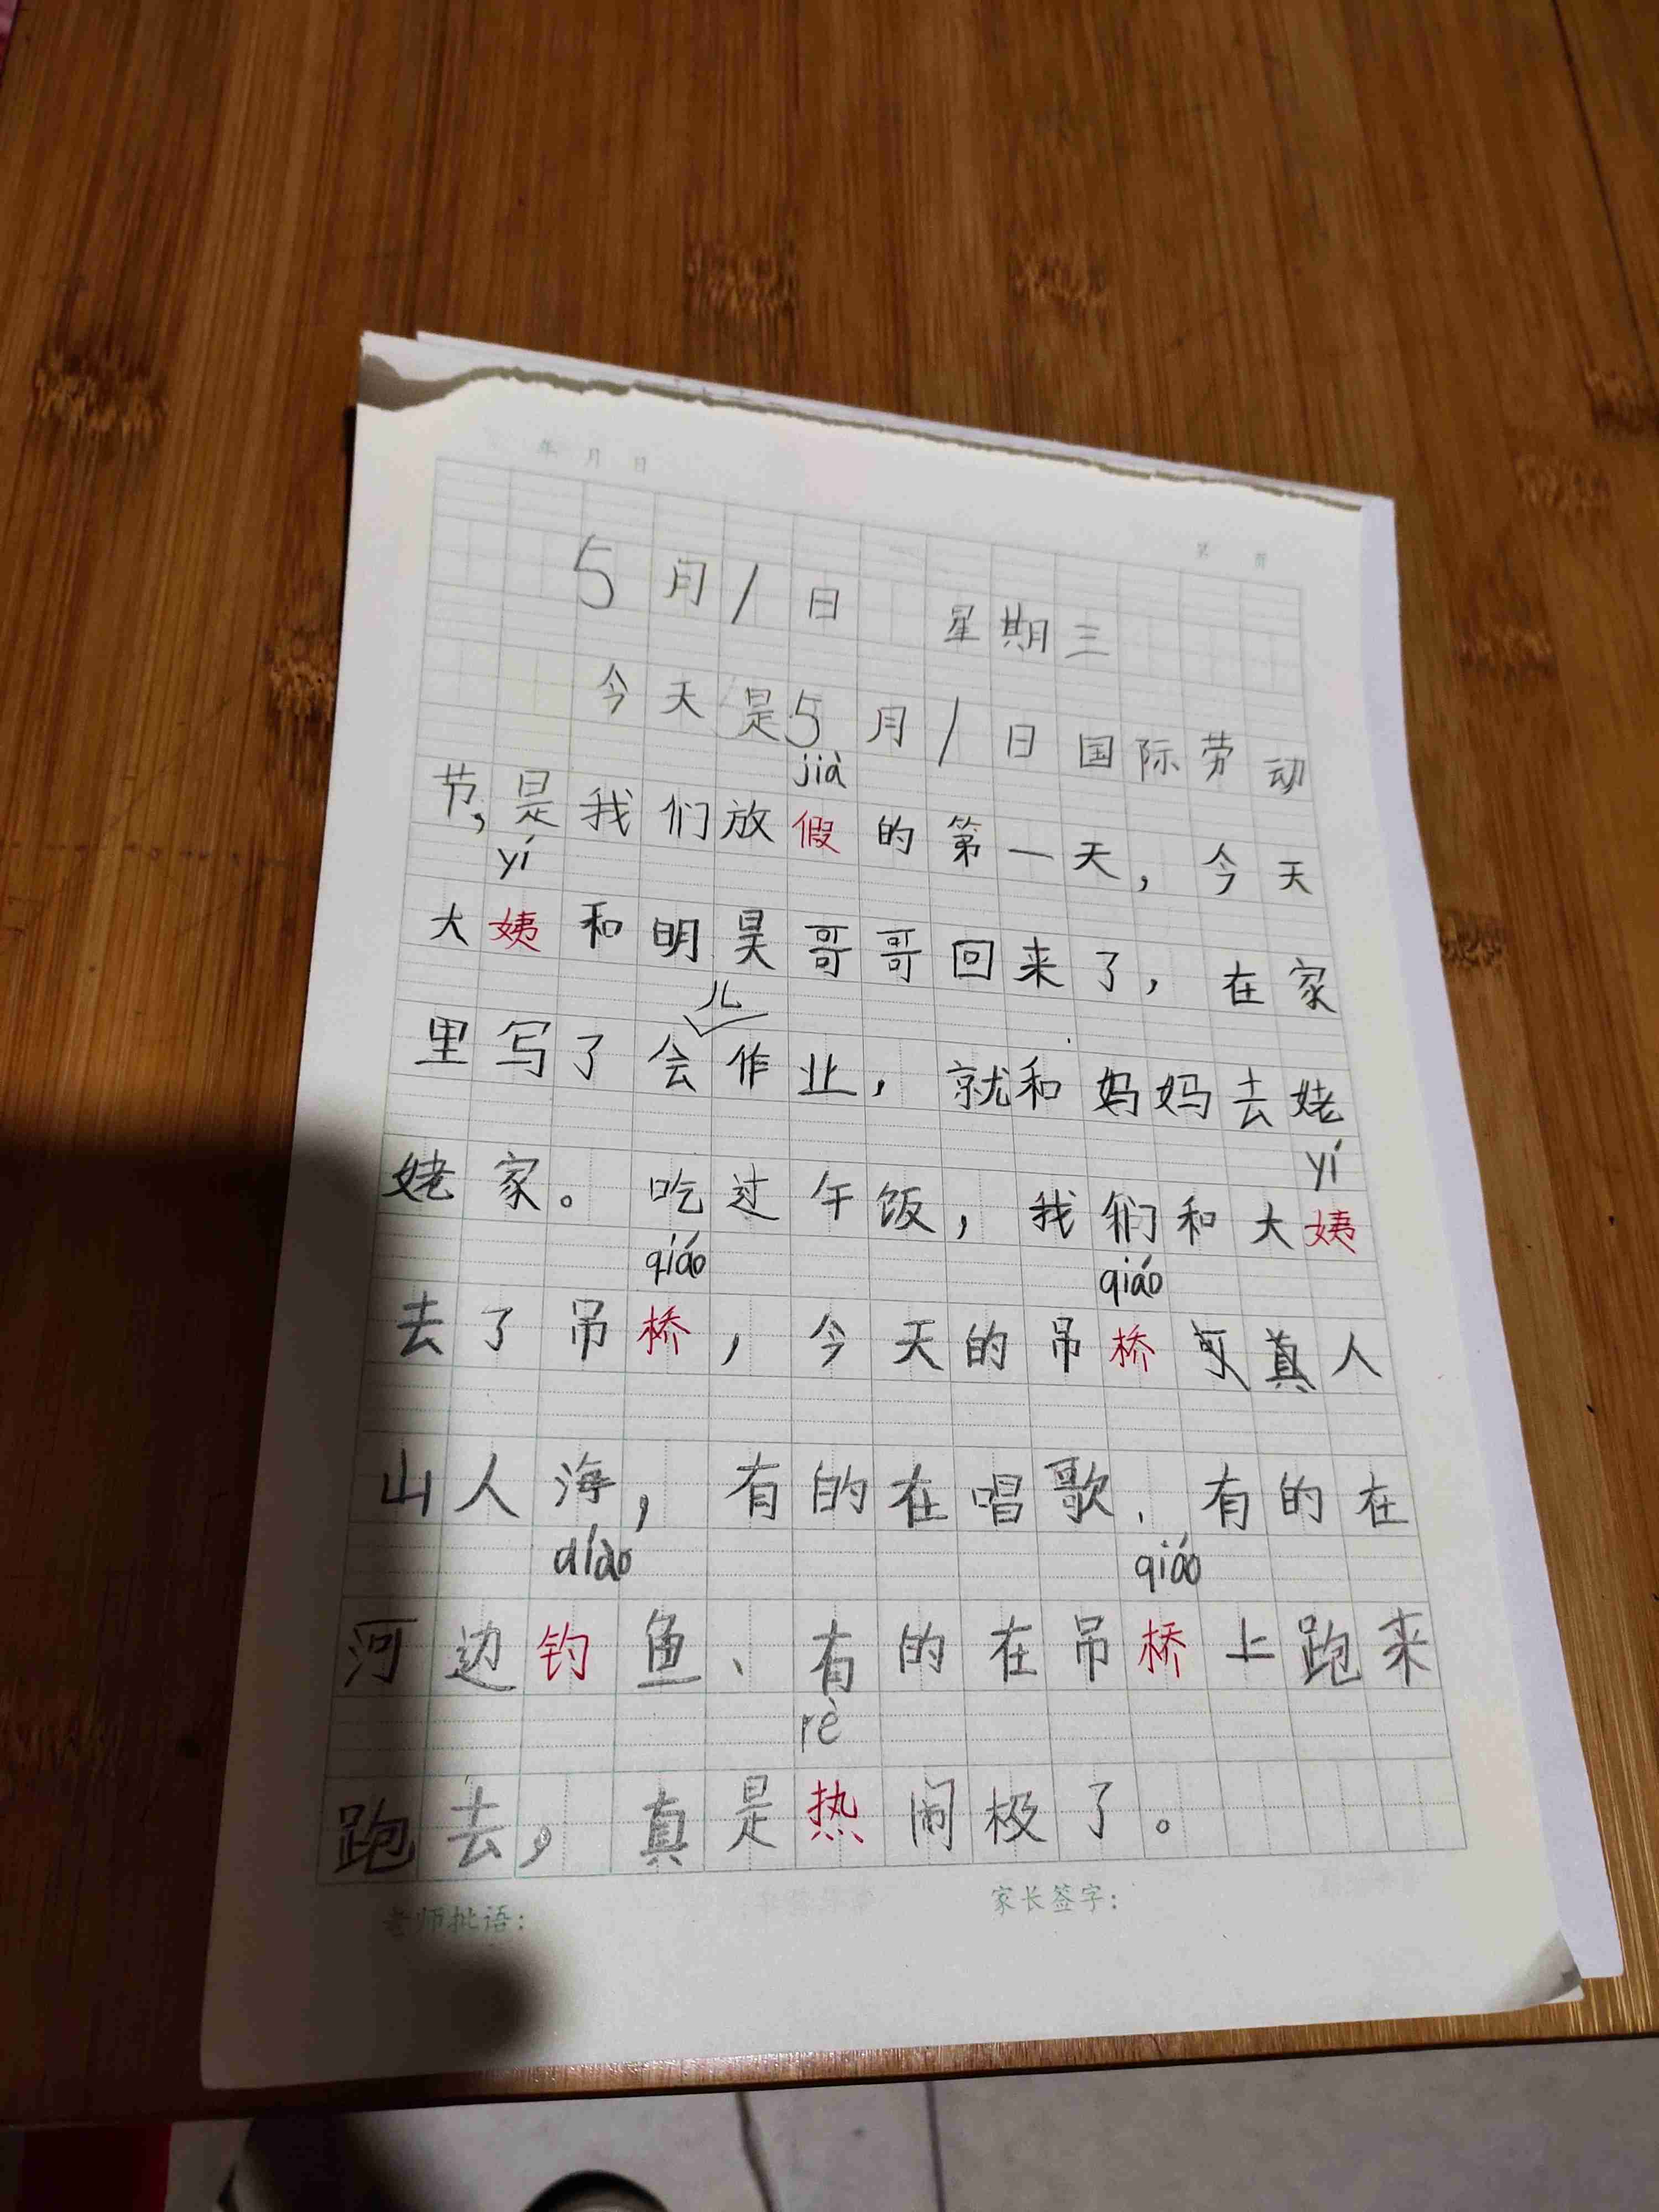 年 月 日
第 页
5月1日 星期三
今天是5月1日国际劳动
jià
节,是我们放假的第一天,今天
yí
大姨和明昊哥哥回来了,在家
儿
里写了会作业,就和妈妈去姥
yí
姥家。吃过午饭,我们和大姨
qiáo qiáo
去了吊桥,今天的吊桥可真人
山人海,有的在唱歌、有的在
diào qiáo
河边钓鱼、有的在吊桥上跑来
rè
跑去,真是热闹极了。
老师批语: 家长签字: